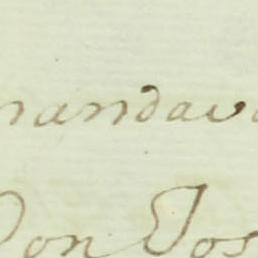 mandava
Don Jos